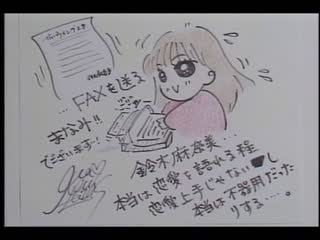 …FAXを送る
まなみ!!
でございます…!
鈴木麻奈美…
本当は恋愛を語れる程
恋愛上手じゃないし
本当は不器用だった
りする…。